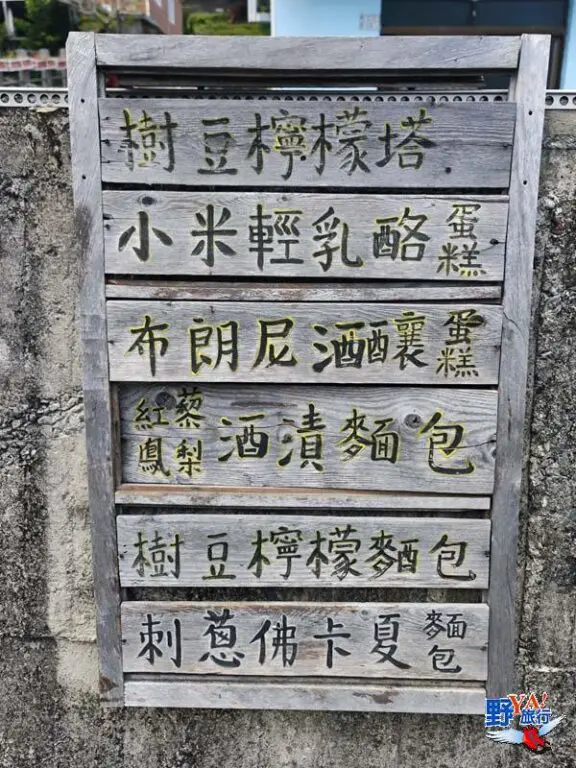 樹豆檸檬塔
小米輕乳酪蛋糕
布朗尼酒釀蛋糕
紅藜鳳梨酒漬麵包
樹豆檸檬麵包
刺蔥佛卡夏麵包
野YA!旅行